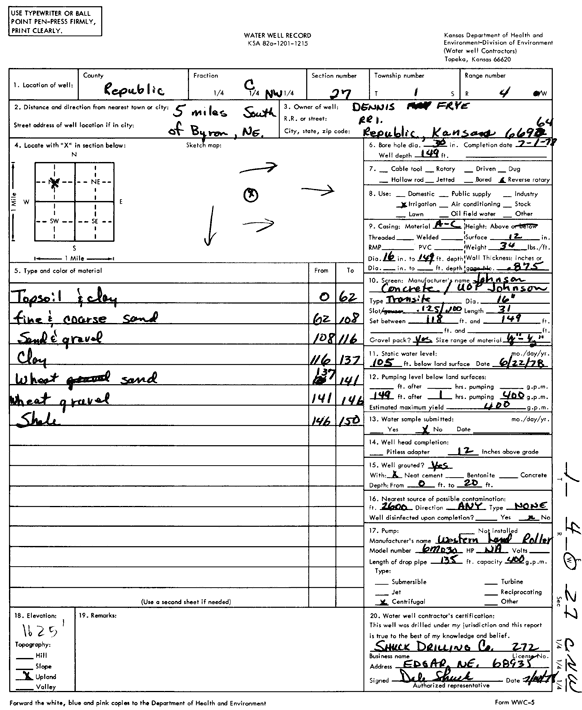 USE TYPEWRITER OR BALL
POINT PEN-PRESS FIRMLY,
PRINT CLEARLY.
WATER WELL RECORD
KSA 82a-1201-1215
Kansas Department of Health and
Environment-Division of Environment
(Water well Contractors)
Topeka, Kansas 66620
1. Location of well:
County Republic
Fraction 1/4 C 1/4 NW 1/4
Section number 27
Township number T 1 S
Range number R 4 W
2. Distance and direction from nearest town or city: 5 miles South
Street address of well location if in city: of Byron, NE.
3. Owner of well: DENNIS FRYE
R.R. or street: RR1.
City, state, zip code: Republic, Kansas 66964
4. Locate with "X" in section below:
Sketch map:
N
NW NE
W E
SW SE
S
1 Mile
1 Mile
X
6. Bore hole dia. 30 in. Completion date 7-1-78
Well depth 149 ft.
7. Cable tool Rotary Driven Dug
Hollow rod Jetted Bored X Reverse rotary
8. Use: Domestic Public supply Industry
X Irrigation Air conditioning Stock
Lawn Oil field water Other
9. Casing: Material A-C Height: Above or below
Threaded Welded Surface 12 in.
RMP PVC Weight 34 lbs./ft.
Dia. 16 in. to 149 ft. depth Wall Thickness: inches or
Dia. in. to ft. depth gage No. .875
5. Type and color of material From To
Topsoil & clay 0 62
fine & coarse sand 62 108
Sand & gravel 108 116
Clay 116 137
Wheat sand 137 141
Wheat gravel 141 146
Shale 146 150
(Use a second sheet if needed)
10. Screen: Manufacturer's name Johnson
Concrete / UOP Johnson
Type Transite Dia. 16"
Slot/gauze .125/.100 Length 31
Set between 118 ft. and 149 ft.
ft. and ft.
Gravel pack? Yes Size range of material
11. Static water level: mo./day/yr.
105 ft. below land surface Date 6/22/78
12. Pumping level below land surfaces:
ft. after hrs. pumping g.p.m.
149 ft. after 1 hrs. pumping 400 g.p.m.
Estimated maximum yield 400 g.p.m.
13. Water sample submitted: mo./day/yr.
Yes X No Date
14. Well head completion:
Pitless adapter 12 Inches above grade
15. Well grouted? Yes
With: X Neat cement Bentonite Concrete
Depth: From 0 ft. to 20 ft.
16. Nearest source of possible contamination:
ft. 2600 Direction ANY Type NONE
Well disinfected upon completion? Yes X No
17. Pump: Not installed
Manufacturer's name Western Land Roller
Model number HP NA Volts
Length of drop pipe 135 ft. capacity 400 g.p.m.
Type:
Submersible Turbine
Jet Reciprocating
X Centrifugal Other
18. Elevation:
1625'
Topography:
Hill
Slope
X Upland
Valley
19. Remarks:
20. Water well contractor's certification:
This well was drilled under my jurisdiction and this report
is true to the best of my knowledge and belief.
SHUCK DRILLING Co. 272
Business name License No.
Address EDGAR, NE. 68935
Signed Dale Shuck Date
Authorized representative
Forward the white, blue and pink copies to the Department of Health and Environment
Form WWC-5
T 1 R 4 W Sec 27 C NW 1/4 1/4 1/4